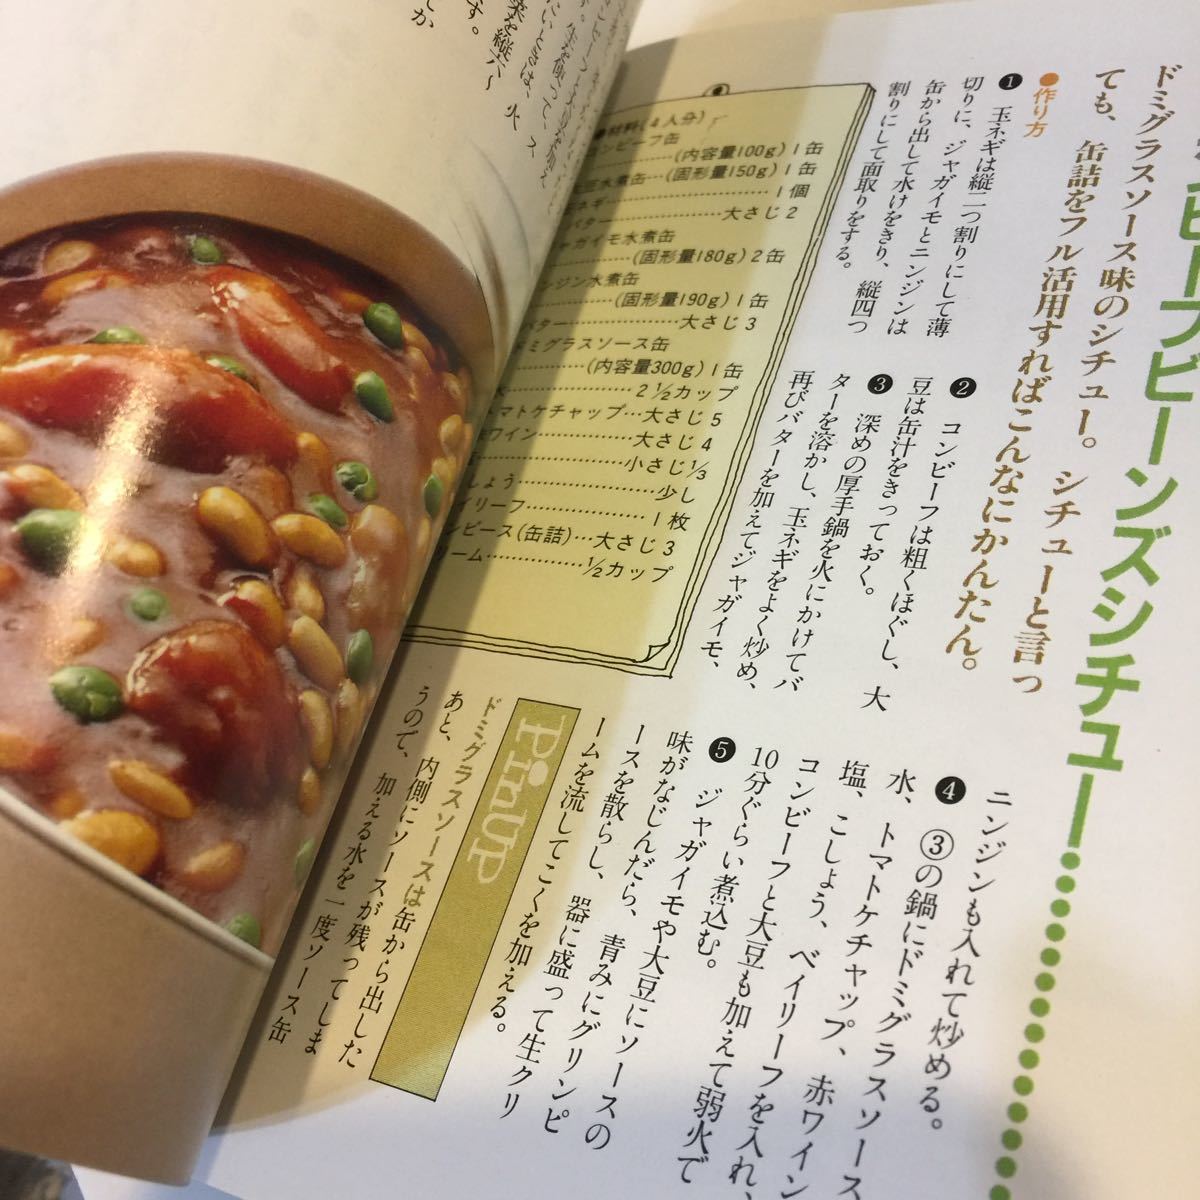 ビーフビーンズシチュー
ドミグラスソース味のシチュー。シチューと言っ
ても、缶詰をフル活用すればこんなにかんたん。
●作り方
❶ 玉ネギは縦二つ割りにして薄
切りに、ジャガイモとニンジンは
缶から出して水けをきり、縦四つ
割りにして面取りをする。
❷ コンビーフは粗くほぐし、大
豆は缶汁をきっておく。
❸ 深めの厚手鍋を火にかけてバ
ターを溶かし、玉ネギをよく炒め、
再びバターを加えてジャガイモ、
ニンジンも入れて炒める。
❹ ③の鍋にドミグラスソース
水、トマトケチャップ、赤ワイン
塩、こしょう、ベイリーフを入れ、
コンビーフと大豆も加えて弱火で
10分ぐらい煮込む。
❺ ジャガイモや大豆にソースの
味がなじんだら、青みにグリンピ
ースを散らし、器に盛って生クリ
ームを流してこくを加える。
●材料(4人分)
ンビーフ缶
(内容量100g)1缶
大豆水煮缶…(固形量150g)1缶
ネギ…1個
バター…大さじ2
ャガイモ水煮缶
(固形量180g)2缶
ンジン水煮缶
(固形量190g)1缶
バター…大さじ3
ドミグラスソース缶
(内容量300g)1缶
水…2½カップ
トマトケチャップ…大さじ5
ワイン…大さじ4
小さじ⅓
しょう…少し
イリーフ…1枚
ンピース(缶詰)…大さじ3
リーム…½カップ
PinUP
ドミグラスソースは缶から出した
あと、内側にソースが残ってしま
うので、加える水を一度ソース缶
たいときは、火
菜を縦六〜
す。